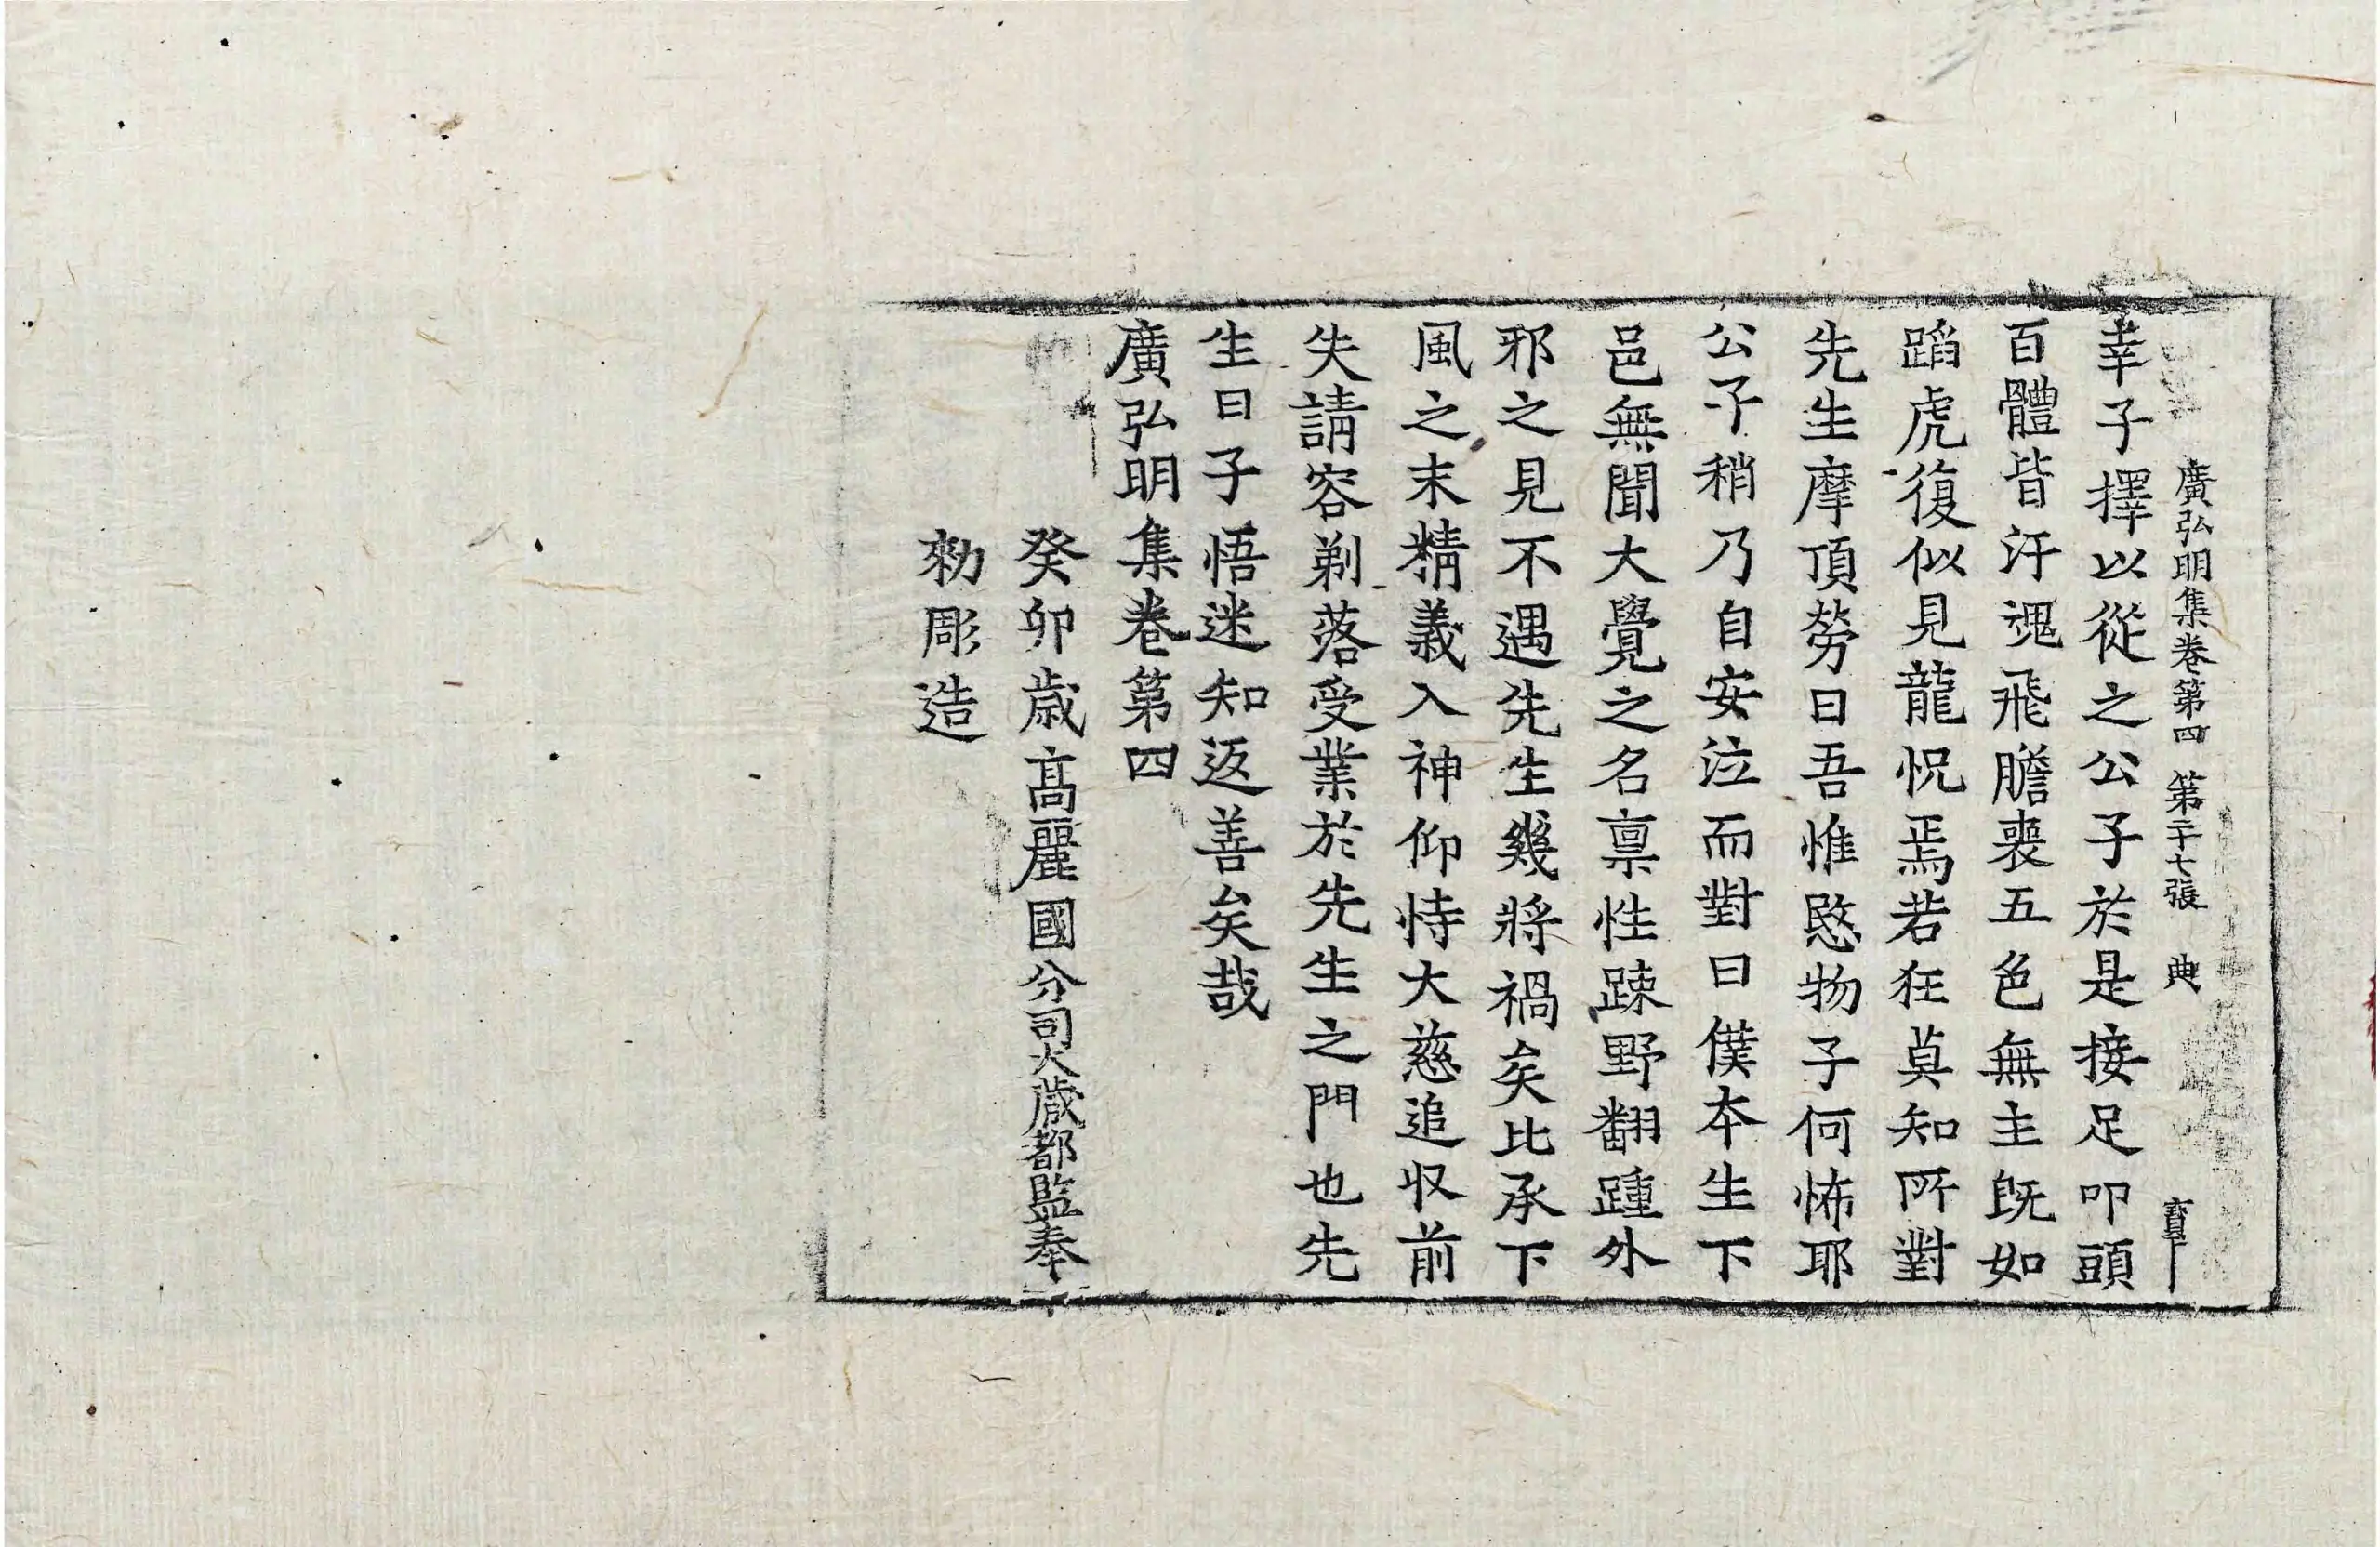 廣弘明集卷第四 第二十七張 典
幸子擇以從之公子於是接足叩頭
百體皆汗魂飛膽喪五色無主旣如
蹈虎復似見龍怳焉若狂莫知所對
先生摩頂勞曰吾惟愍物子何怖耶
公子稍乃自安泣而對曰僕本生下
邑無聞大覺之名稟性踈野翻踵外
邪之見不遇先生幾將禍矣比承下
風之末精義入神仰恃大慈追收前
失請容剃落受業於先生之門也先
生曰子悟迷知返善矣哉
廣弘明集卷第四
癸卯歲高麗國分司大藏都監奉
勑彫造